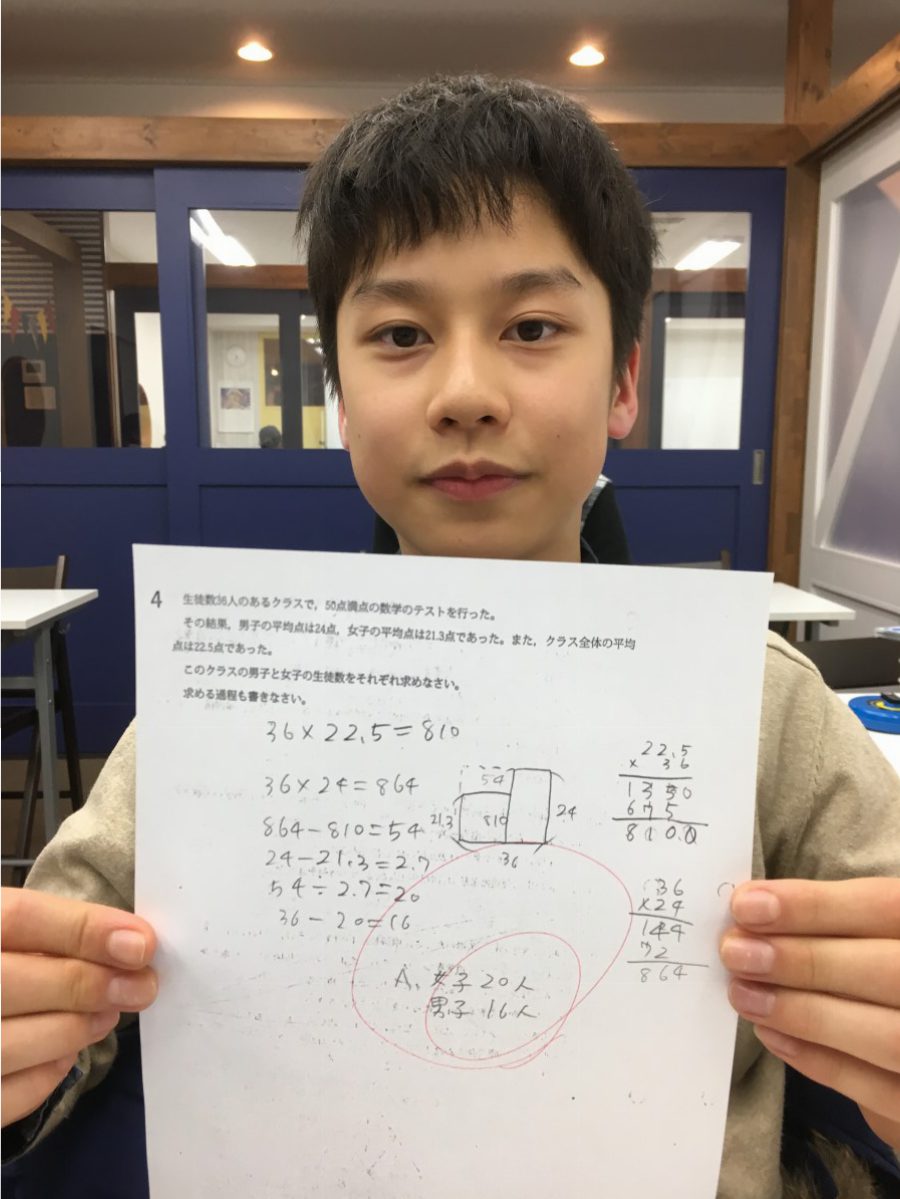 4 生徒数36人のあるクラスで，50点満点の数学のテストを行った。
その結果，男子の平均点は24点，女子の平均点は21.3点であった。また，クラス全体の平均
点は22.5点であった。
このクラスの男子と女子の生徒数をそれぞれ求めなさい。
求める過程も書きなさい。
36×22.5=810
36×24=864
864-810=54
24-21.3=2.7
54÷2.7=20
36-20=16
54
21.3
810
24
36
A. 女子 20人
男子 16人
22.5
× 36
1350
675
810.0
36
×24
144
72
864